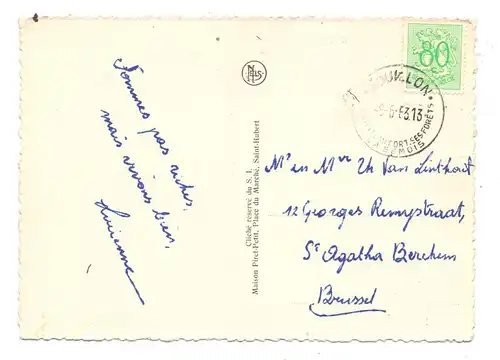 Sommes pas riches,
mais vivons bien,
Lucienne
NELS
Cliché reservé du S. I.
Maison Piret-Petit, Place du Marché, Saint-Hubert
80
BOUILLON
-6-53.13
FORT. SES FORÊTS
Mr en Mvr Th Van Linthout
12 Georges Remystraat,
St Agatha Berchem
Brussel